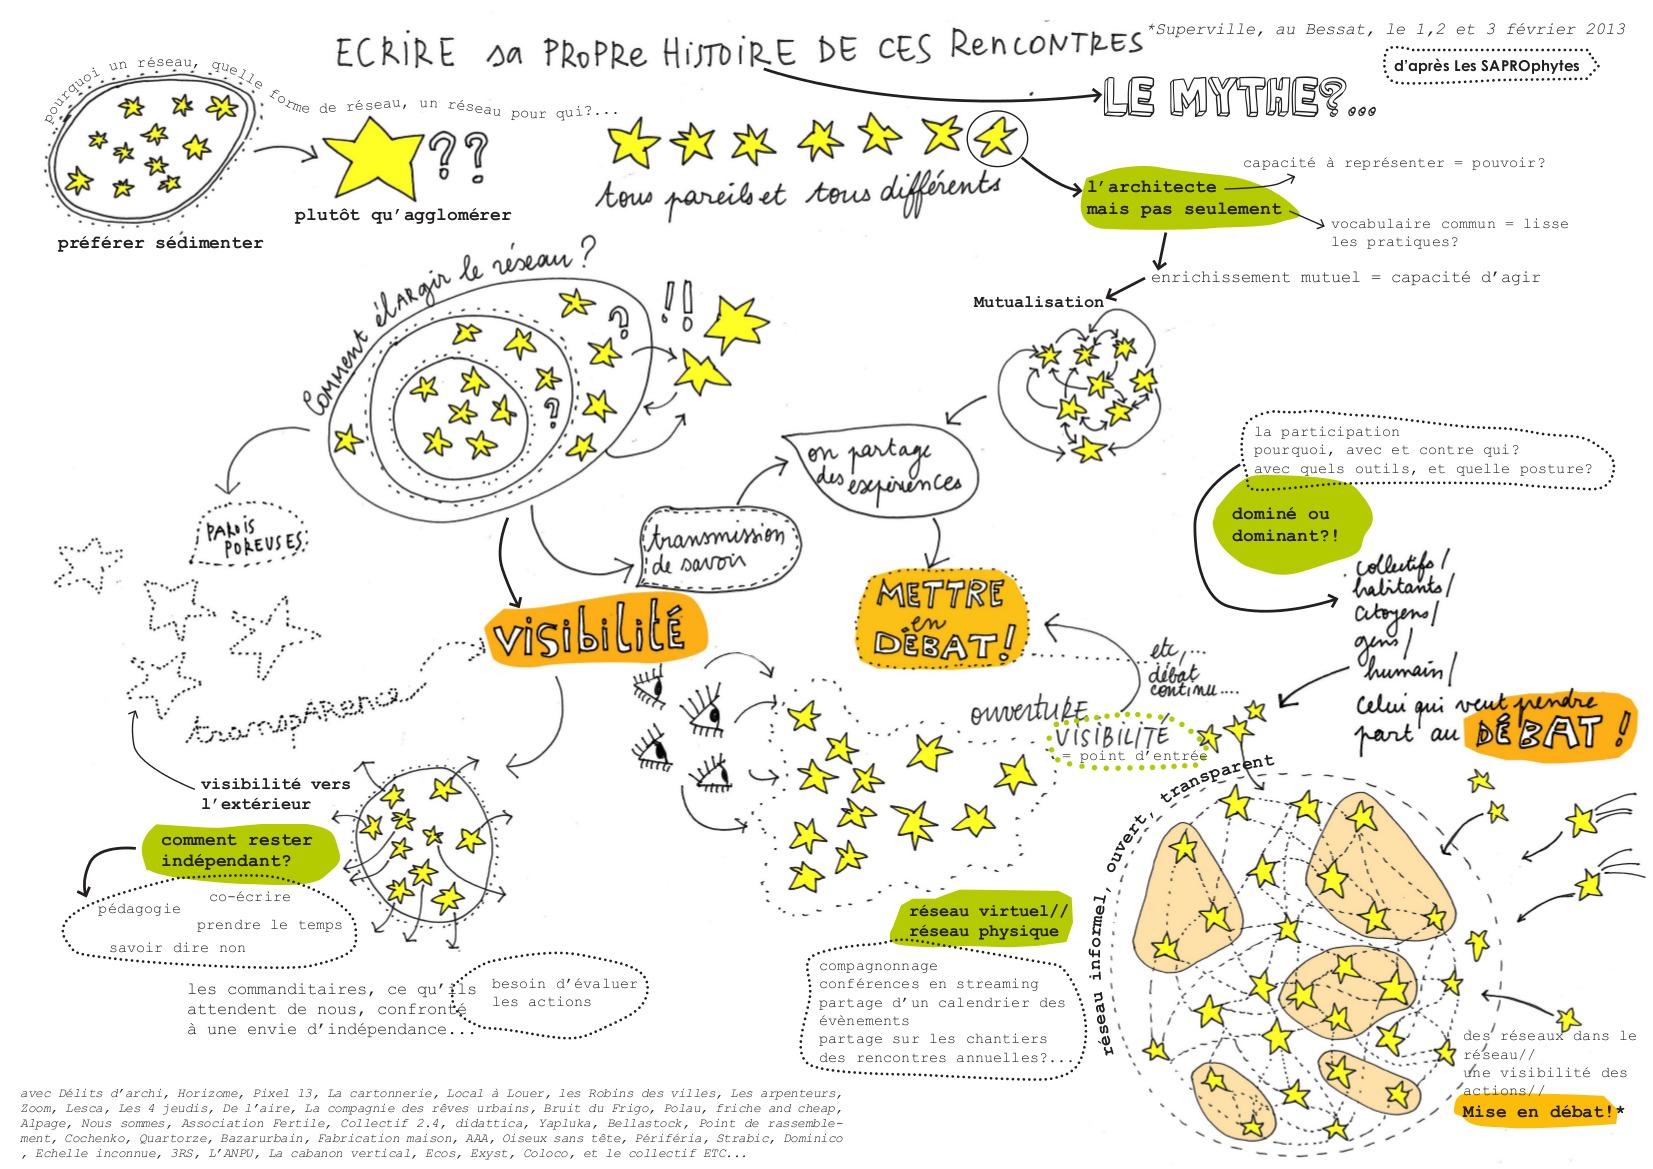 ECRIRE sa PROPRE HISTOIRE DE CES RENCONTRES
*Superville, au Bessat, le 1,2 et 3 février 2013
d'après Les SAPROphytes
LE MYTHE?...
pourquoi un réseau, quelle forme de réseau, un réseau pour qui?...
??
plutôt qu'agglomérer
préférer sédimenter
tous pareils et tous différents
l'architecte
mais pas seulement
capacité à représenter = pouvoir?
vocabulaire commun = lisse
les pratiques?
enrichissement mutuel = capacité d'agir
Mutualisation
Comment élargir le réseau?
?
!!
?
PAROIS
POREUSES
on partage
des expériences
transmission
de savoir
la participation
pourquoi, avec et contre qui?
avec quels outils, et quelle posture?
dominé ou
dominant?!
collectifs/
habitants/
citoyens/
gens/
humain/
Celui qui veut prendre
part au DÉBAT!
VISIBILITÉ
METTRE
en
DÉBAT!
etc,...
débat
continu....
transparence
ouverture
VISIBILITÉ
= point d'entrée
visibilité vers
l'extérieur
comment rester
indépendant?
co-écrire
pédagogie
prendre le temps
savoir dire non
les commanditaires, ce qu'ils
attendent de nous, confronté
à une envie d'indépendance...
besoin d'évaluer
les actions
réseau virtuel//
réseau physique
compagnonnage
conférences en streaming
partage d'un calendrier des
évènements
partage sur les chantiers
des rencontres annuelles?...
réseau informel, ouvert, transparent
des réseaux dans le
réseau//
une visibilité des
actions//
Mise en débat!*
avec Délits d'archi, Horizome, Pixel 13, La cartonnerie, Local à Louer, les Robins des villes, Les arpenteurs,
Zoom, Lesca, Les 4 jeudis, De l'aire, La compagnie des rêves urbains, Bruit du Frigo, Polau, friche and cheap,
Alpage, Nous sommes, Association Fertile, Collectif 2.4, didattica, Yapluka, Bellastock, Point de rassemble-
ment, Cochenko, Quartorze, Bazarurbain, Fabrication maison, AAA, Oiseux sans tête, Périféria, Strabic, Dominico
, Echelle inconnue, 3RS, L'ANPU, La cabanon vertical, Ecos, Exyst, Coloco, et le collectif ETC...